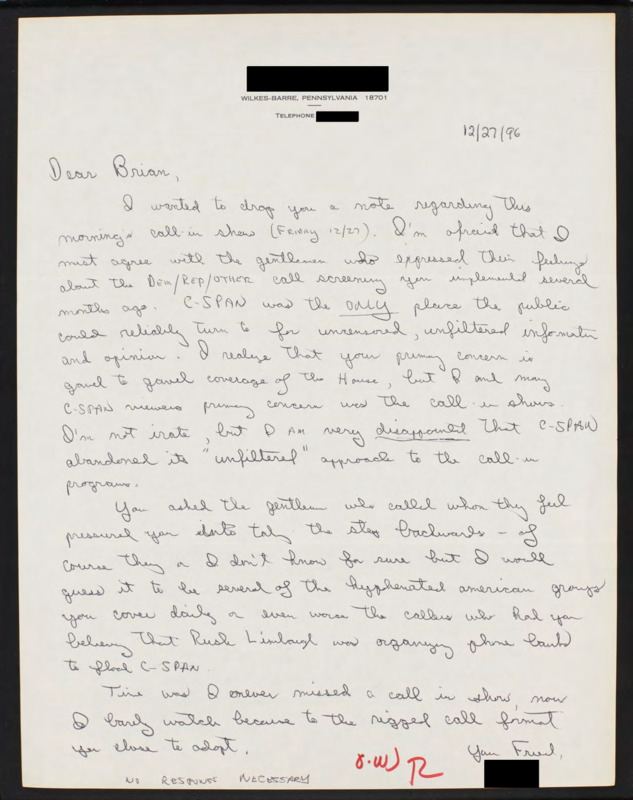 WILKES-BARRE, PENNSYLVANIA 18701
TELEPHONE
12/27/96
Dear Brian,
I wanted to drop you a note regarding this
morning's call-in show (FRIDAY 12/27). I'm afraid that I
must agree with the gentlemen who expressed their feelings
about the DEM/REP/OTHER call screening you implemented several
months ago. C-SPAN was the ONLY place the public
could reliably turn to for uncensored, unfiltered information
and opinion. I realize that your primary concern is
gavel to gavel coverage of the House, but I and many
C-SPAN viewers primary concern was the call-in shows.
I'm not irate, but I AM very disappointed that C-SPAN
abandoned its "unfiltered" approach to the call-in
programs.
You asked the gentlemen who called whom they feel
pressured you into taking the step backwards - of
course they or I don't know for sure but I would
guess it to be several of the hyphenated american groups
you cover daily or even worse the callers who had you
believing that Rush Limbaugh was organizing phone banks
to flood C-SPAN.
Time was I never missed a call in show, now
I barely watch because to the rigged call format
you chose to adopt.
Your Friend,
NO RESPONSE NECESSARY